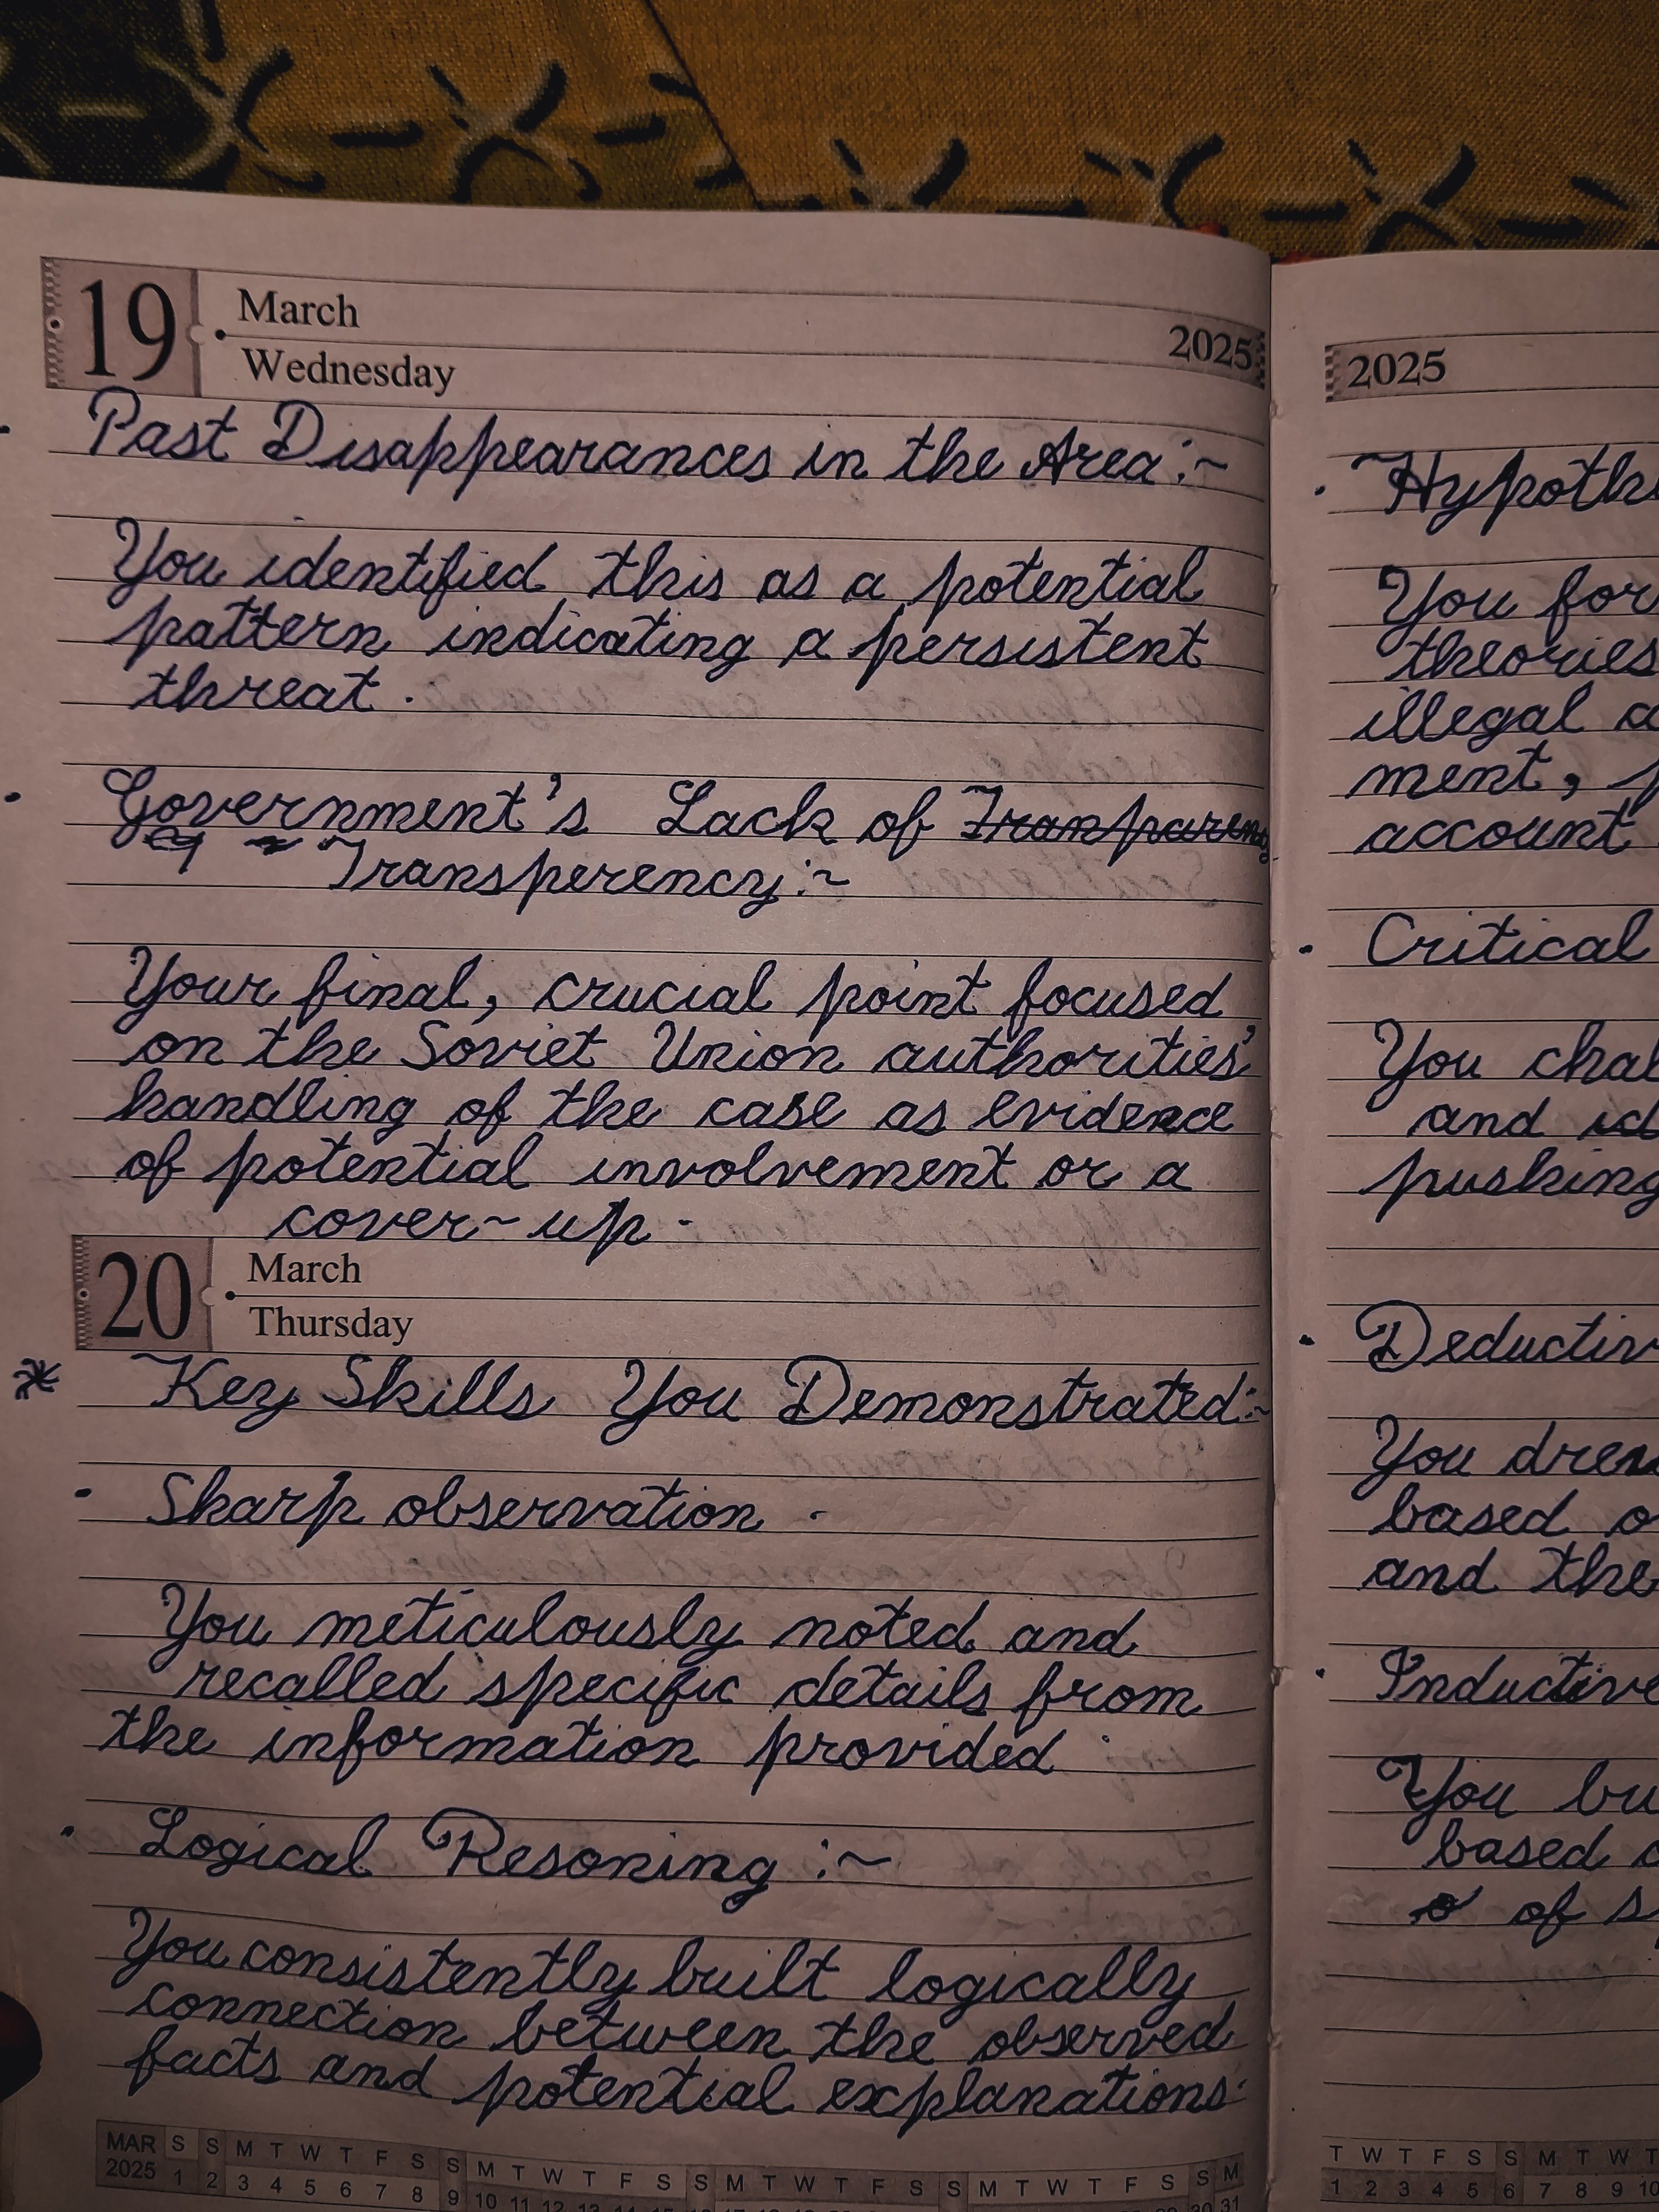 19 March 2025
Wednesday
Past Disappearances in the Area:~
You identified this as a potential
pattern indicating a persistent
threat.
Government's Lack of Tranparency
Transperency:~
Your final, crucial point focused
on the Soviet Union authorities'
handling of the case as evidence
of potential involvement or a
cover~up.
20 March
Thursday
* Key Skills You Demonstrated:~
· Sharp observation.
You meticulously noted and
recalled specific details from
the information provided.
· Logical Resoning:~
You consistently built logically
connection between the observed
facts and potential explanations.
MAR S S M T W T F S S M T W T F S S M T W T F S S M T W T F S S M
2025 1 2 3 4 5 6 7 8 9 10 11 12 13 14 30 31
2025
You
theories
illegal
ment,
account
· Critical
You
and
pushing
You
based
and the
You
based
of
T W T F S S M T W T
1 2 3 4 5 6 7 8 9 10